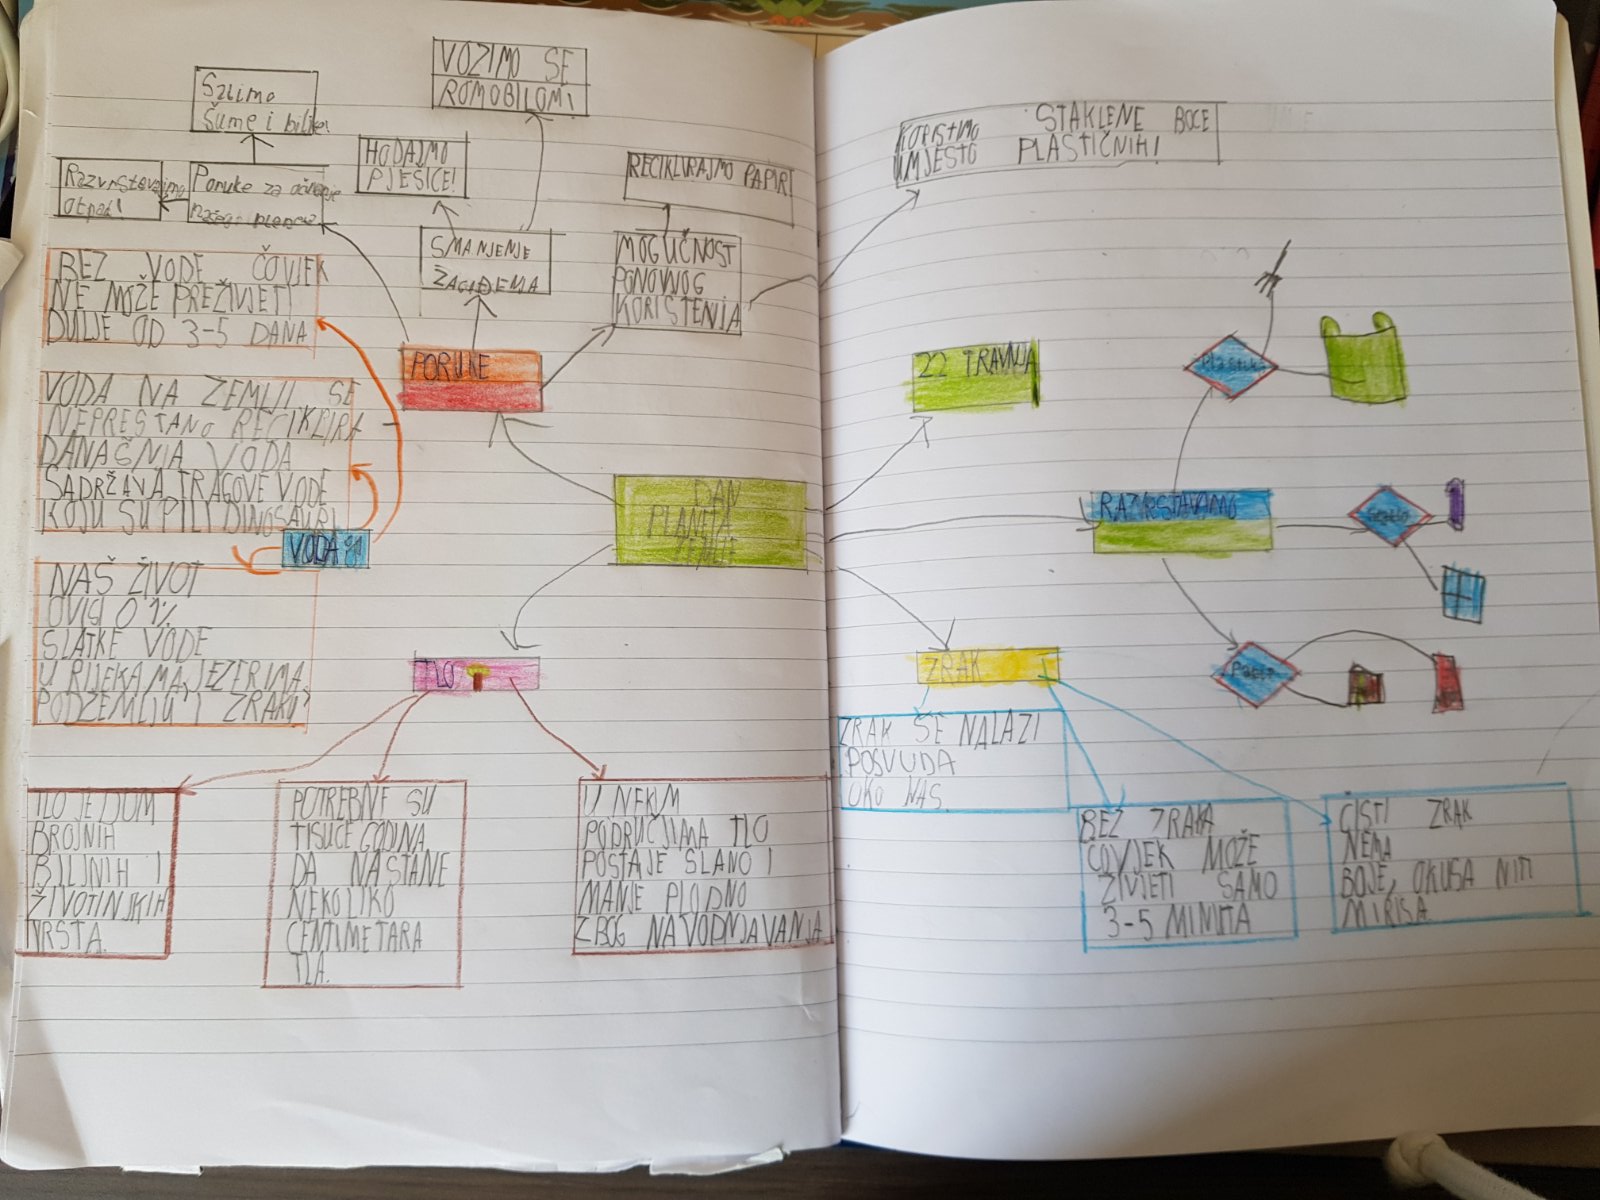 VOZIMO SE
ROMOBILOM!
Sadimo
Šume i biljke
HODAJMO
PJEŠICE!
RECIKLIRAJMO PAPIR!
Razvrstavajmo
otpad!
Poruke za očuvanje
našeg planeta
SMANJENJE
ZAGAĐENJA
MOGUČNOST
PONOVNOG
KORIŠTENJA
BEZ VODE ČOVJEK
NE MOŽE PREŽIVJETI
DULJE OD 3-5 DANA
PORUKE
VODA NA ZEMLJI SE
NEPRESTANO RECIKLIRA
DANAČNJA VODA
SADRŽAVA TRAGOVE VODE
KOJU SU PILI DINOSAURI
VODA
DAN
PLANETA
ZEMLJE
NAŠ ŽIVOT
OVISI O 1%
SLATKE VODE
U RIJEKAMA, JEZERIMA,
PODZEMLJU I ZRAKU
TLO
TLO JE DOM
BROJNIH
BILJNIH I
ŽIVOTINJSKIH
VRSTA.
POTREBNE SU
TISUĆE GODINA
DA NASTANE
NEKOLIKO
CENTIMETARA
TLA.
U NEKIM
PODRUČJIMA TLO
POSTAJE SLANO I
MANJE PLODNO
ZBOG NAVODNJAVANJA
KORISTIMO STAKLENE BOCE
UMJESTO PLASTIČNIH!
22 TRAVNJA
Plastika
RAZVRSTAVAMO
Staklo
Papir
ZRAK
ZRAK SE NALAZI
POSVUDA
OKO NAS.
BEZ ZRAKA
ČOVJEK MOŽE
ŽIVJETI SAMO
3-5 MINUTA
ČISTI ZRAK
NEMA
BOJE, OKUSA NITI
MIRISA.